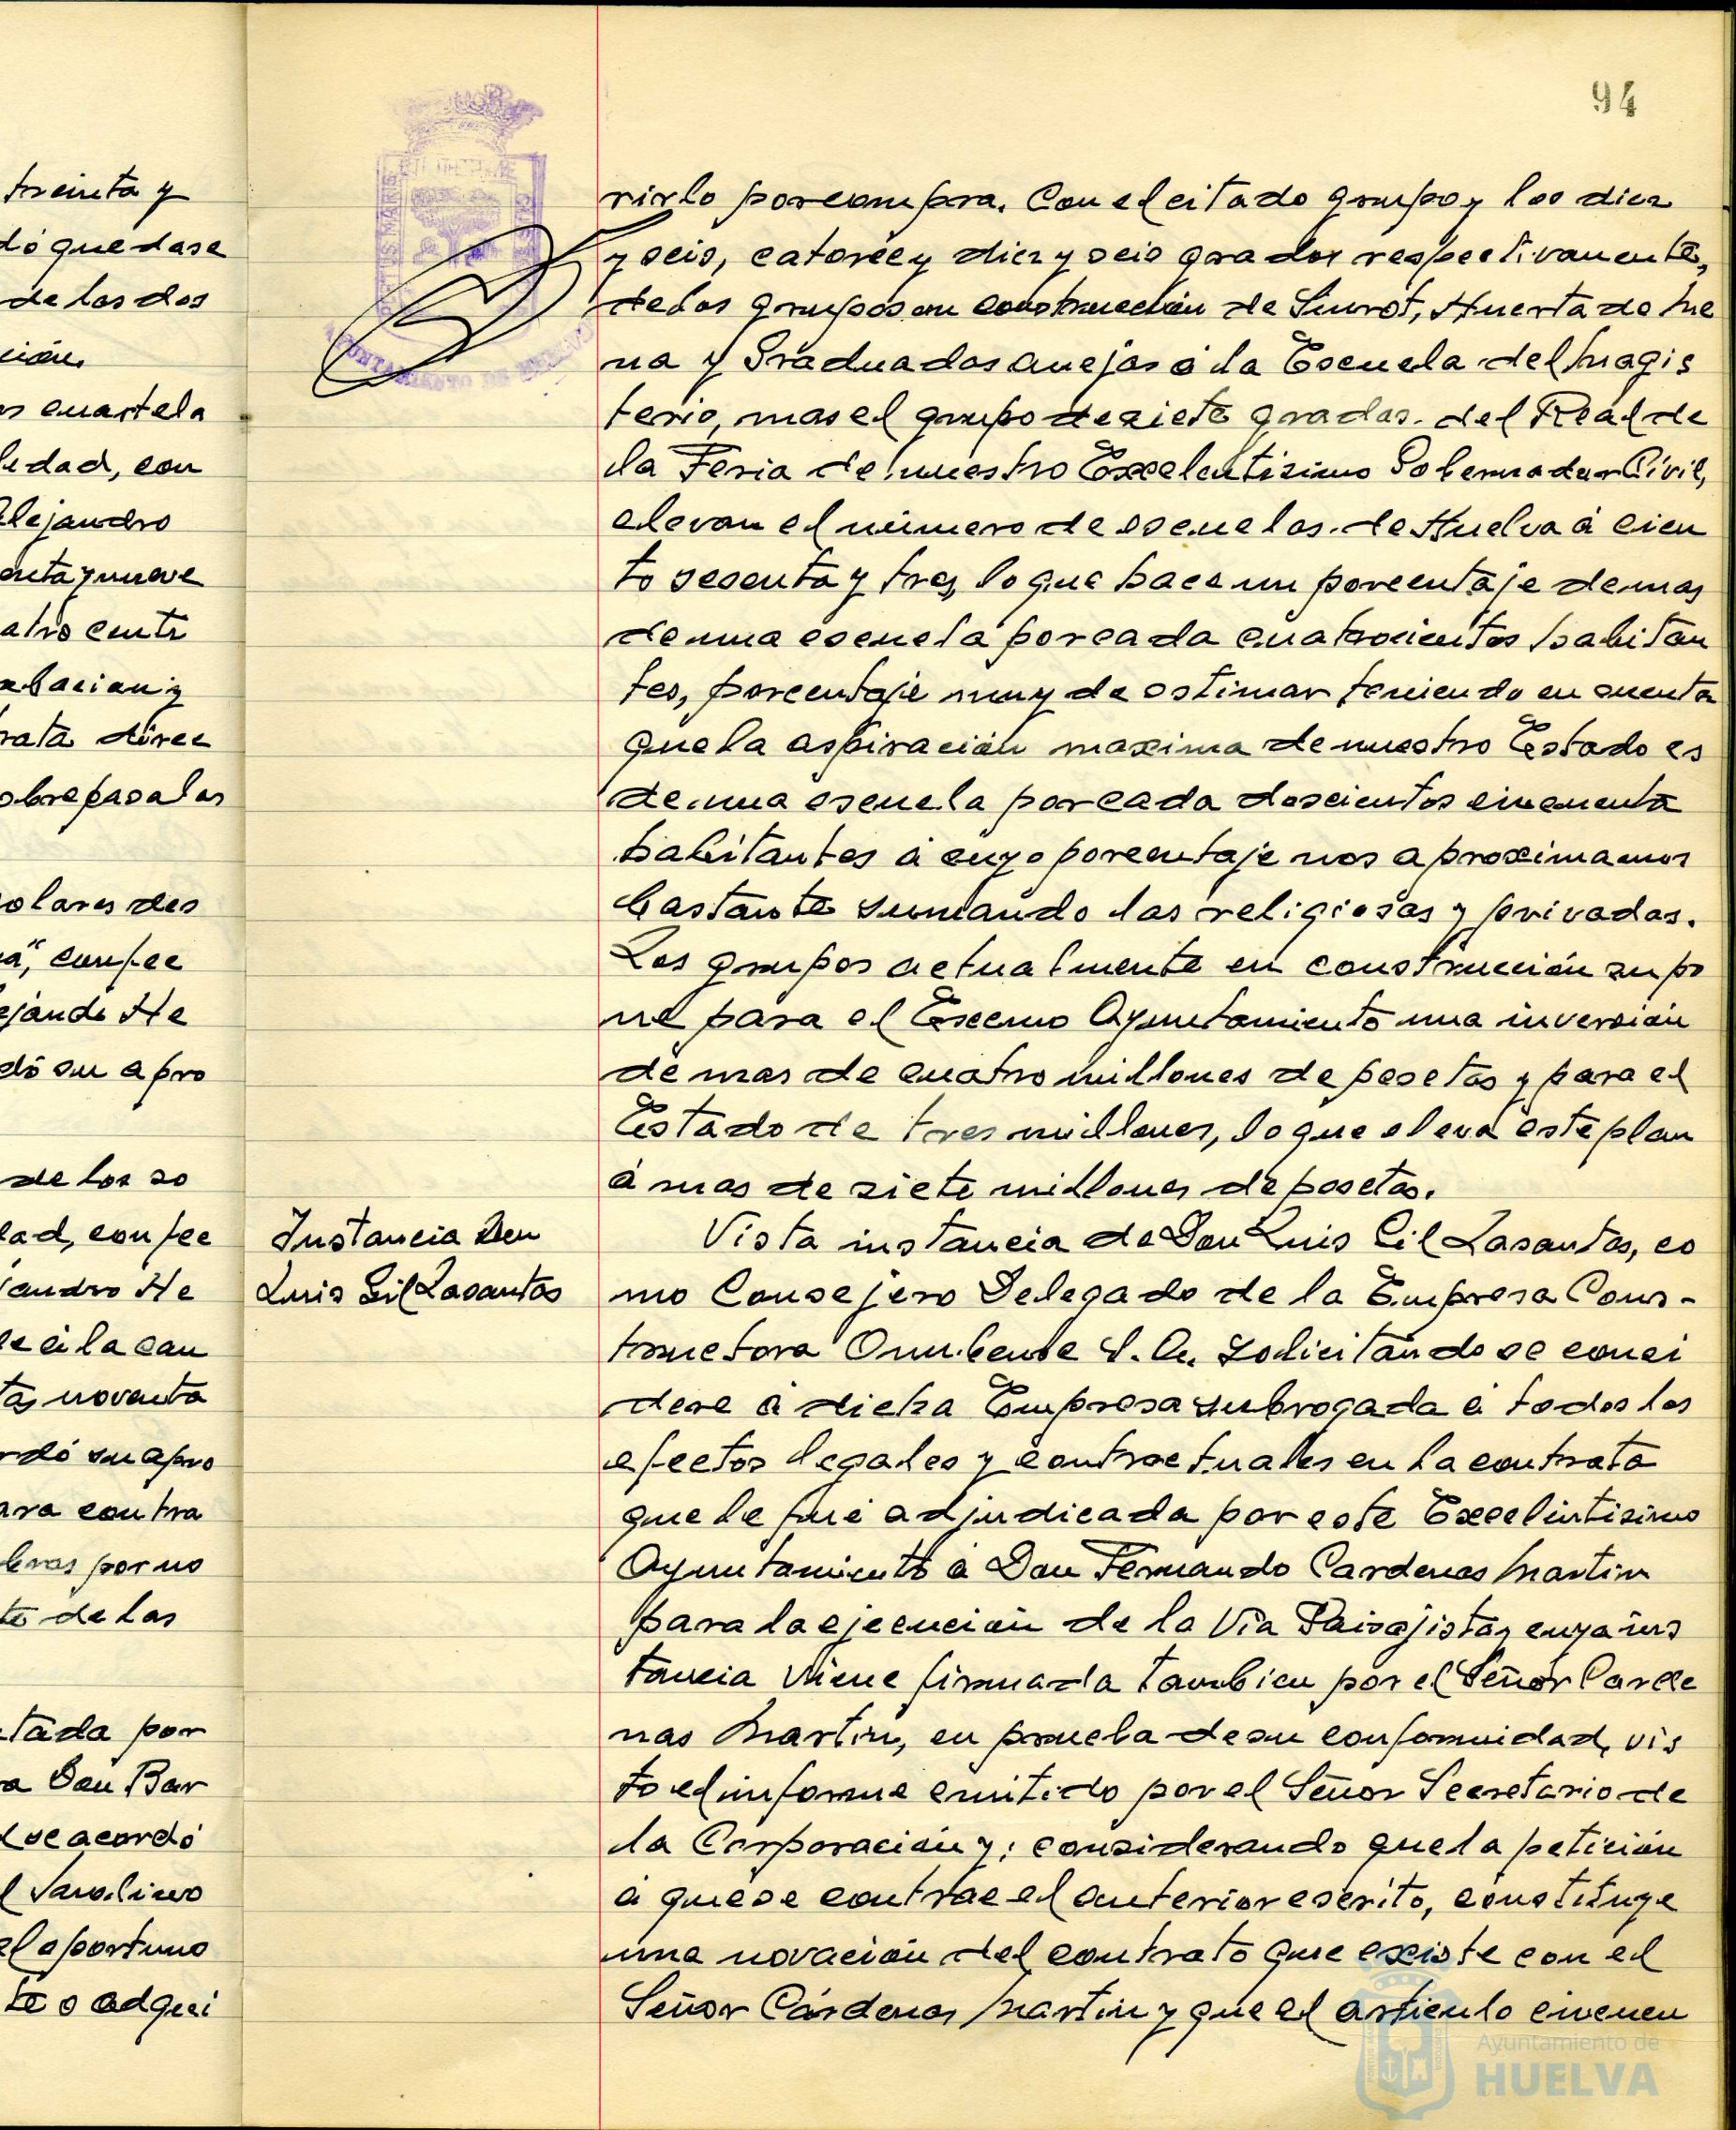 94
treinta y
dó quedase
de los dos
ción.
cuartela
ledad, con
Alejandro
enta y nueve
atro centi
robacion y
rata direc
sobrepasa las
olares des
na", confec
ejandó He
dó su apro
de los so
dad, confec
jandro He
de á la can
tas noventa
rdó su apro
para contra
bras por no
te de las
tada por
a Don Bar
se acordó
l Sanchino
el oportuno
te o adqui
PORTUS MARIS
AYUNTAMIENTO DE HUELVA
rirlo por compra. Con el citado grupo y los diez
y seis, catorce y diez y seis grados respectivamente,
de los grupos en construcción de Siurot, Huerta de Me
na y Graduadas anejas á la Escuela del Magis
terio, mas el grupo de siete grados del Real de
la Feria de nuestro Excelentisimo Gobernador Civil,
elevan el número de escuelas de Huelva á cien
to sesenta y tres, lo que hace un porcentaje de mas
de una escuela por cada cuatrocientos habitan
tes, porcentaje muy de estimar teniendo en cuenta
que la aspiración maxima de nuestro Estado es
de una escuela por cada doscientos cincuenta
habitantes á cuyo porcentaje nos aproximamos
bastante sumando las religiosas y privadas.
Los grupos actualmente en construcción supo
ne para el Excmo Ayuntamiento una inversión
de mas de cuatro millones de pesetas y para el
Estado de tres millones, lo que eleva este plan
á mas de siete millones de pesetas.
Instancia Don
Luis Gil Lasantas
Vista instancia de Don Luis Gil Lasantas, co
mo Consejero Delegado de la Empresa Cons-
tructora Onubense S. A. solicitando se consi
dere á dicha Empresa subrogada á todos los
efectos legales y contractuales en la contrata
que le fué adjudicada por este Excelentisimo
Ayuntamiento á Don Fernando Cardenas Martin
para la ejecución de la Via Paisajista, cuya ins
tancia viene firmada tambien por el Señor Carde
nas Martin, en prueba de su conformidad, vis
to el informe emitido por el Señor Secretario de
la Corporación y; considerando que la petición
á que se contrae el anterior escrito, constituye
una novación del contrato que existe con el
Señor Cárdenas Martin y que el articulo cincuen
Ayuntamiento de
HUELVA